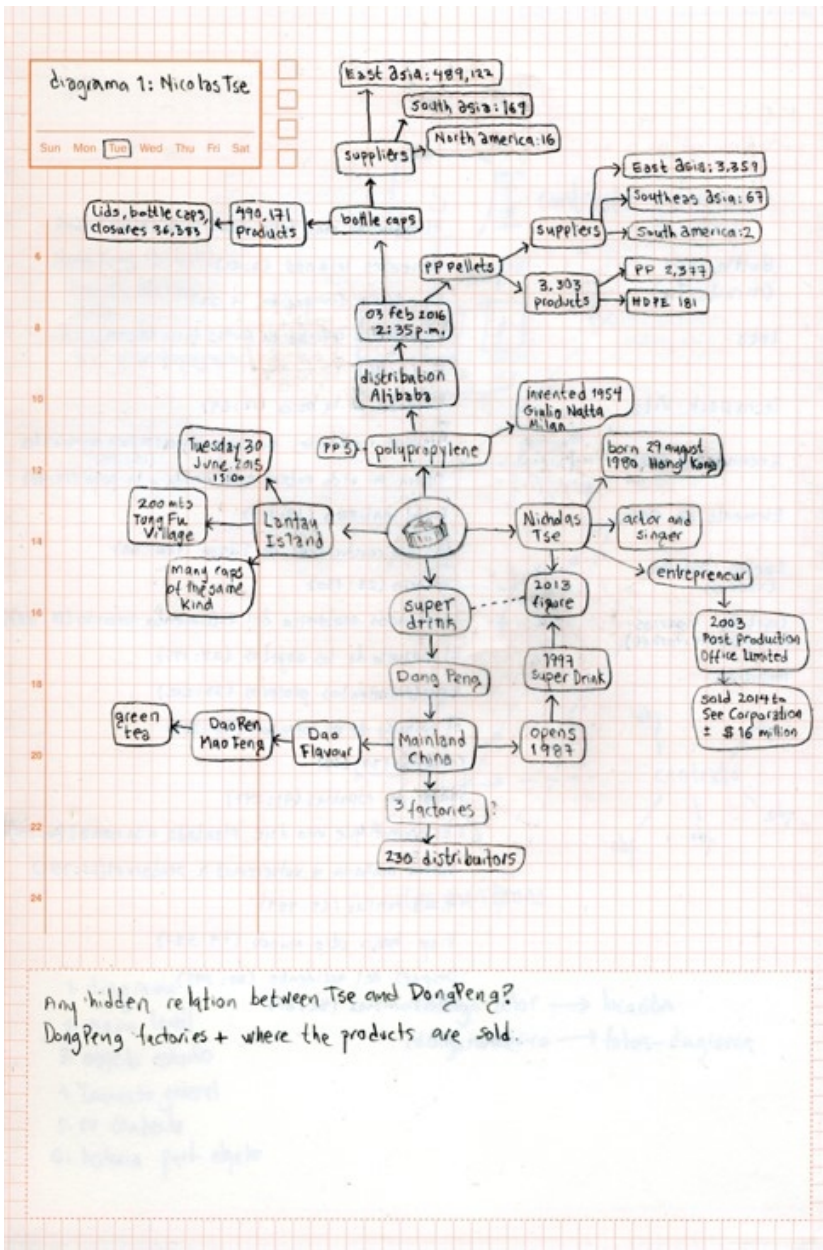 diagrama 1: Nicolas Tse
Sun Mon Tue Wed Thu Fri Sat
East asia: 489,122
South asia: 169
North america: 16
suppliers
bottle caps
490,171
Products
Lids, bottle caps,
closures 36,383
East asia: 3,359
Southeas asia: 67
South america: 2
suppliers
PP pellets
3,303
products
PP 2,377
HDPE 181
03 feb 2016
2:35 p.m.
distribution
Alibaba
invented 1954
Giulio Natta
Milan
PP5
polypropylene
Tuesday 30
June 2015
15:00
200 mts
Tong Fu
Village
Lantau
Island
many caps
of the same
kind
born 29 august
1980, Hong Kong
Nicholas
Tse
actor and
singer
entrepreneur
2003
Post Production
Office Limited
sold 2014 to
See Corporation
± $ 16 million
super
drink
2013
figure
1997
Super Drink
opens
1987
Dong Peng
Mainland
China
Dao
Flavour
DaoRen
Mao Feng
green
tea
3 factories ?
230 distribuitors
6
8
10
12
14
16
18
20
22
24
Any hidden relation between Tse and DongPeng?
DongPeng factories + where the products are sold.